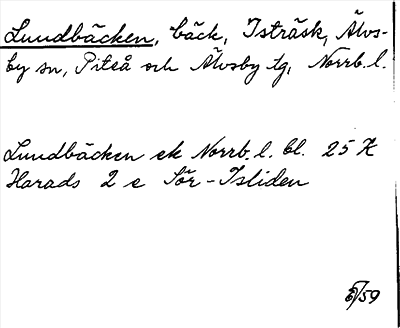 Lundbäcken, bäck, Isträsk, Älvs-
by sn, Piteå och Älvsby tg, Norrb. l.
Lundbäcken ek Norrb. l. bl. 25 K
Harads 2 e Sör-Isliden
/59